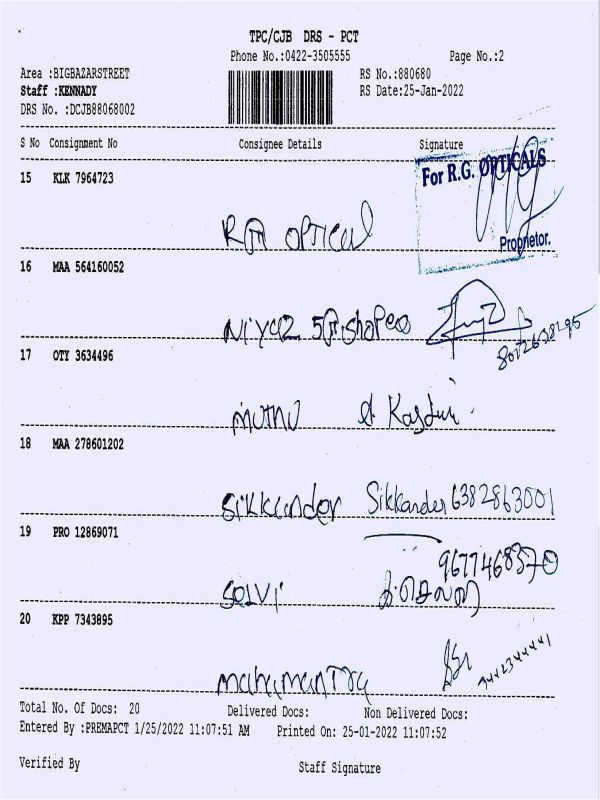 TPC/CJB DRS - PCT
Phone No.:0422-3505555 Page No.:2
Area :BIGBAZARSTREET RS No.:880680
Staff :KENNADY RS Date:25-Jan-2022
DRS No. :DCJB88068002
S No Consignment No Consignee Details Signature
15 KLK 7964723 For R.G. OPTICALS
RG OPTICAL Proprietor.
16 MAA 564160052
Niyaz
17 OTY 3634496
muthu
18 MAA 278601202
Sikkander Sikkander 6382863001
19 PRO 12869071
9677468370
Selvi
20 KPP 7343895
Total No. Of Docs: 20 Delivered Docs: Non Delivered Docs:
Entered By :PREMAPCT 1/25/2022 11:07:51 AM Printed On: 25-01-2022 11:07:52
Verified By Staff Signature